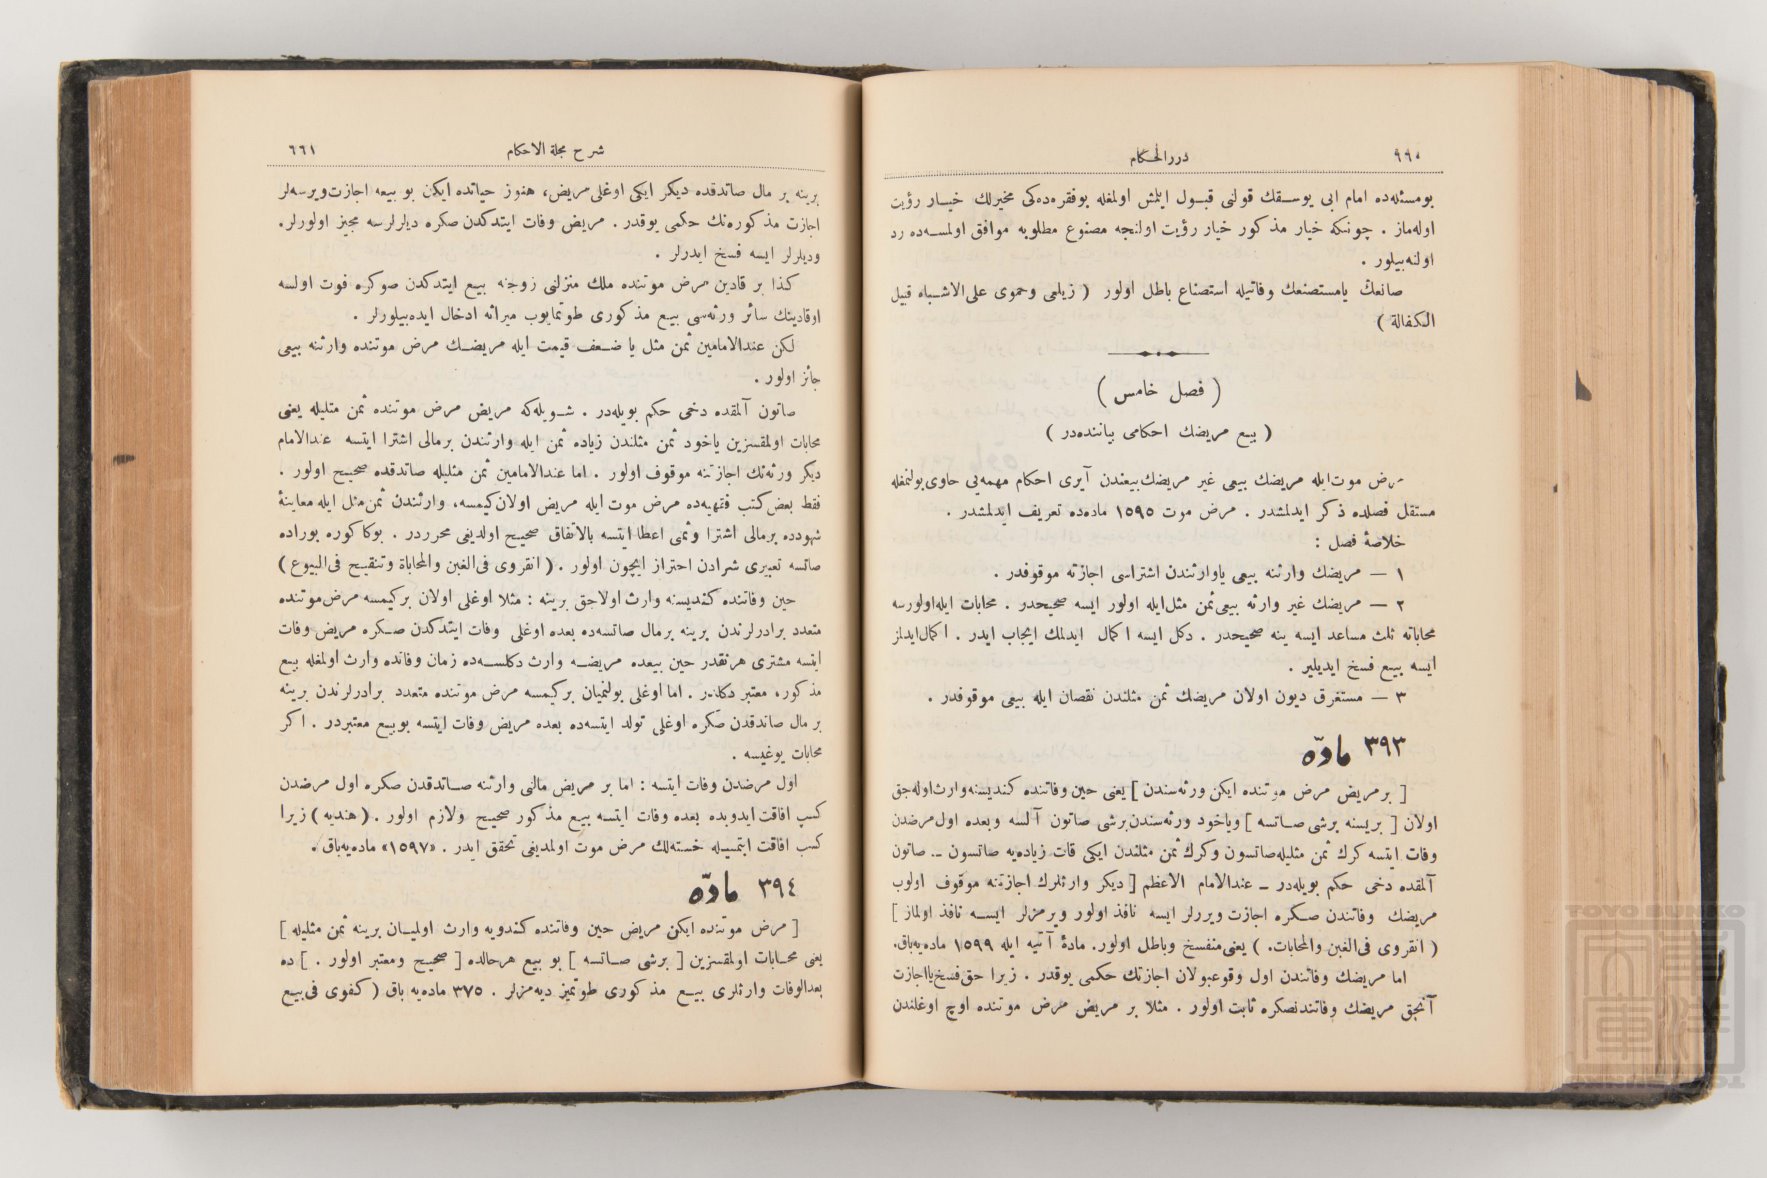 ٩٩٠ دررالحكام
بومسئله‌ده امام ابی یوسفك قولنی قبول ایتلمش اولمغله بوفقره‌ده‌كی مخیرلك خیار رؤیت
اوله‌ماز . چونكه خیار مذكور خیار رؤیت اولنجه مصنوع مطلوبه موافق اولمسه‌ده رد
اولنه‌بیلور .
صانعك یامستصنعك وفاتیله استصناع باطل اولور ( زیلعی وحموی علی‌الاشباه قبیل
الكفالة )
( فصل خامس )
( بیع مریضك احكامی بیاننده‌در )
مرض موت‌ایله مریضك بیعی غیر مریضك‌بیعندن آیری احكام مهمه‌یی حاوی‌بولنمغله
مستقل فصلده ذكر ایدلمشدر . مرض موت ١٥٩٥ ماده‌ده تعریف ایدلمشدر .
خلاصهٔ فصل :
١ — مریضك وارثنه بیعی یاوارثندن اشتراسی اجازته موقوفدر .
٢ — مریضك غیر وارثه بیعی‌ثمن مثل‌ایله اولور ایسه صحیحدر . محابات ایله‌اولورسه
محاباته ثلث مساعد ایسه ینه صحیحدر . دكل ایسه اكمال ایدلمك ایجاب ایدر . اكمال‌ایدلمز
ایسه بیع فسخ ایدیلیر .
٣ — مستغرق دیون اولان مریضك ثمن مثلندن نقصان ایله بیعی موقوفدر .
٣٩٣ مادّه
[ برمریض مرض موتنده ایكن ورثه‌سندن ] یعنی حین وفاتنده كندیسنه‌وارث‌اوله‌جق
اولان [ بریسنه برشی صاتسه ] ویاخود ورثه‌سندن‌برشی صاتون آلسه وبعده اول‌مرضدن
وفات ایتسه كرك ثمن مثلیله‌صاتسون وكرك ثمن مثلندن ایكی قات زیاده‌یه صاتسون — صاتون
آلمقده دخی حكم بویله‌در — عندالامام الاعظم [ دیكر وارثلرك اجازتنه موقوف اولوب
مریضك وفاتندن صكره اجازت ویررلر ایسه نافذ اولور ویرمزلر ایسه نافذ اولماز ]
( انقروی فی‌الغبن والمحابات. ) یعنی‌منفسخ وباطل اولور. مادهٔ آتیه ایله ١٥٩٩ ماده‌یه‌باق.
اما مریضك وفاتندن اول وقوعبولان اجازتك حكمی یوقدر . زیرا حق‌فسخ‌یااجازت
آنجق مریضك وفاتندنصكره ثابت اولور . مثلا بر مریض مرض موتنده اوچ اوغلندن
شرح مجلة الاحكام ٦٦١
برینه بر مال صاتدقده دیكر ایكی اوغلی‌مریض، هنوز حیاتده ایكن بو بیعه اجازت‌ویرسه‌لر
اجازت مذكوره‌نك حكمی یوقدر . مریض وفات ایتدكدن صكره دیلرلرسه مجیز اولورلر.
ودیلرلر ایسه فسخ ایدرلر .
كذا بر قادین مرض موتنده ملك منزلنی زوجنه بیع ایتدكدن صوكره فوت اولسه
اوقادینك سائر ورثه‌سی بیع مذكوری طوتمایوب میراثه ادخال ایده‌بیلورلر .
لكن عندالامامین ثمن مثل یا ضعف قیمت ایله مریضك مرض موتنده وارثنه بیعی
جائز اولور .
صاتون آلمقده دخی حكم بویله‌در . شویله‌كه مریض مرض موتنده ثمن مثلیله یعنی
محابات اولمقسزین یاخود ثمن مثلندن زیاده ثمن ایله وارثندن برمالی اشترا ایتسه عندالامام
دیكر ورثه‌نك اجازتنه موقوف اولور . اما عندالامامین ثمن مثلیله صاتدقده صحیح اولور .
فقط بعض‌كتب فقهیه‌ده مرض موت ایله مریض اولان‌كیمسه، وارثندن ثمن‌مثل ایله معاینهٔ
شهودده برمالی اشترا وثمنی اعطاایتسه بالاتفاق صحیح اولدیغی محرردر . بوكاكوره بوراده
صاتسه تعبیری شرادن احتراز ایچون اولور . ( انقروی فی‌الغبن والمحاباة وتنقیح فی‌البیوع )
حین وفاتنده كندیسنه وارث اولاجق برینه : مثلا اوغلی اولان بركیمسه مرض‌موتنده
متعدد برادرلرندن برینه برمال صاتسه‌ده بعده اوغلی وفات ایتدكدن صكره مریض وفات
ایتسه مشتری هرنقدر حین بیعده مریضه وارث دكلسه‌ده زمان وفاتده وارث اولمغله بیع
مذكور، معتبر دكلدر . اما اوغلی بولنمیان بركیمسه مرض موتنده متعدد برادرلرندن برینه
بر مال صاتدقدن صكره اوغلی تولد ایتسه‌ده بعده مریض وفات ایتسه بوبیع معتبردر . اكر
محابات یوغیسه .
اول مرضدن وفات ایتسه : اما بر مریض مالنی وارثنه صاتدقدن صكره اول مرضدن
كسب افاقت ایدوبده بعده وفات ایتسه بیع مذكور صحیح ولازم اولور . ( هندیه ) زیرا
كسب افاقت ایتمسیله خسته‌لك مرض موت اولمدیغی تحقق ایدر . «١٥٩٧» ماده‌یه‌باق .
٣٩٤ مادّه
[ مرض موتنده ایكن مریض حین وفاتنده كندویه وارث اولمیان برینه ثمن مثلیله ]
یعنی محابات اولمقسزین [ برشی صاتسه ] بو بیع هرحالده [ صحیح ومعتبر اولور . ] ده
بعدالوفات وارثلری بیع مذكوری طوتمیز دیه‌مزلر . ٣٧٥ ماده‌یه باق ( كفوی فی‌بیع
TOYO BUNKO